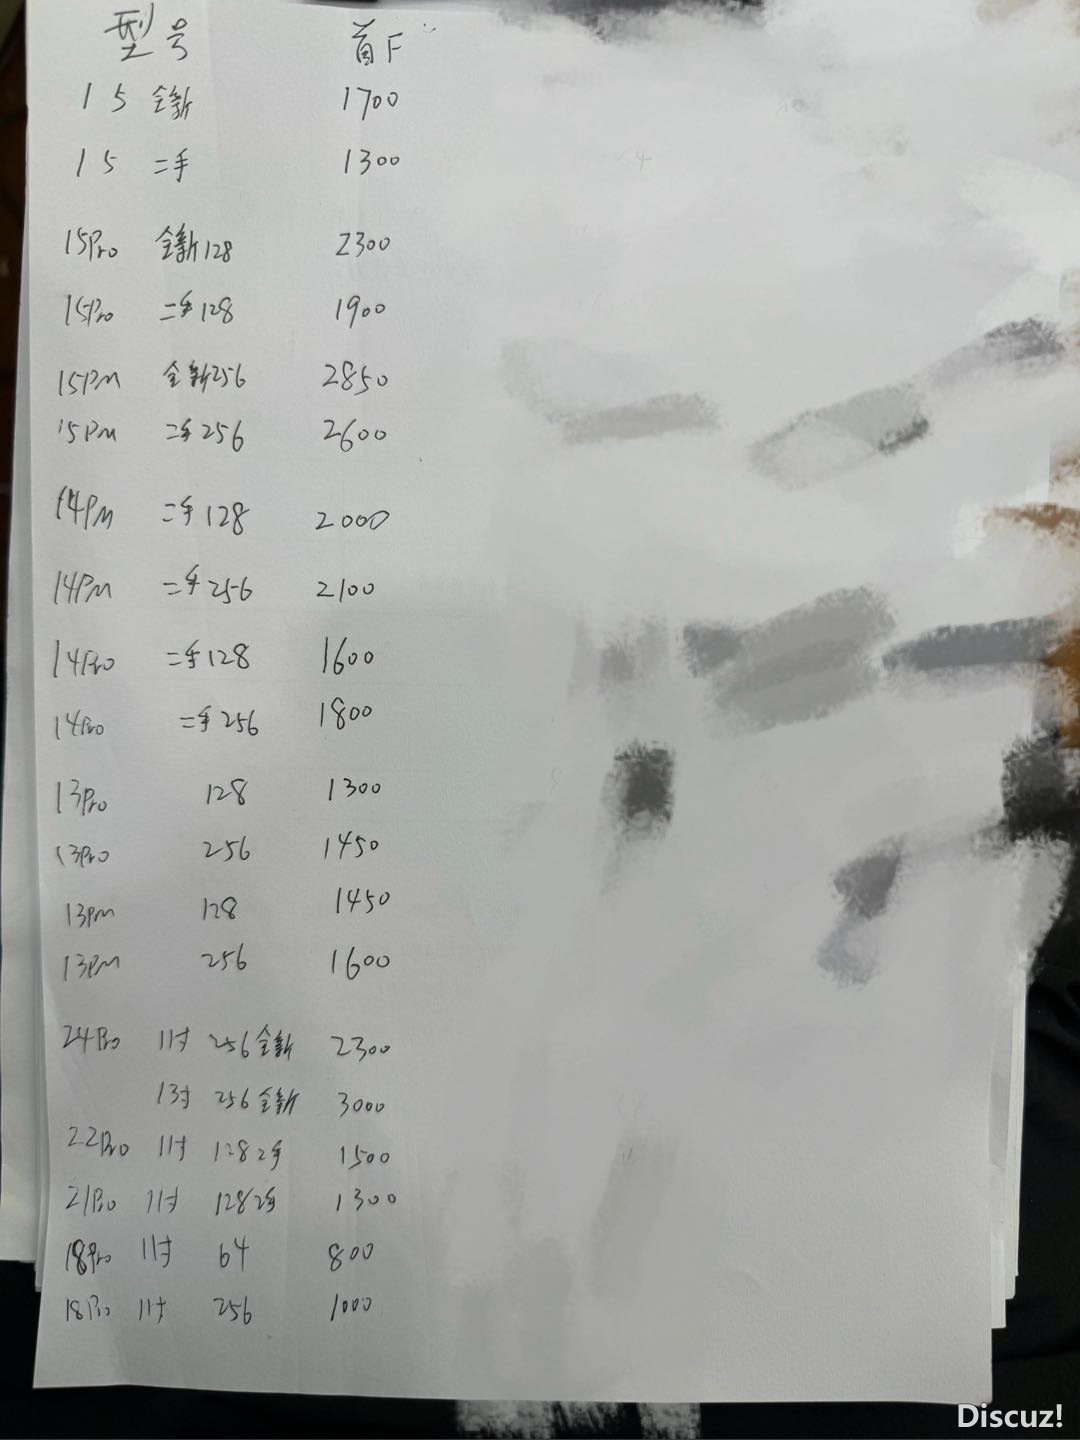 型号 首F
15 全新 1700
15 二手 1300
15Pro 全新128 2300
15Pro 二手128 1900
15PM 全新256 2850
15PM 二手256 2600
14PM 二手128 2000
14PM 二手256 2100
14Pro 二手128 1600
14Pro 二手256 1800
13Pro 128 1300
13Pro 256 1450
13PM 128 1450
13PM 256 1600
24Pro 11寸 256全新 2300
13寸 256全新 3000
22Pro 11寸 128 2手 1500
21Pro 11寸 128 2手 1300
18Pro 11寸 64 800
18Pro 11寸 256 1000
Discuz!